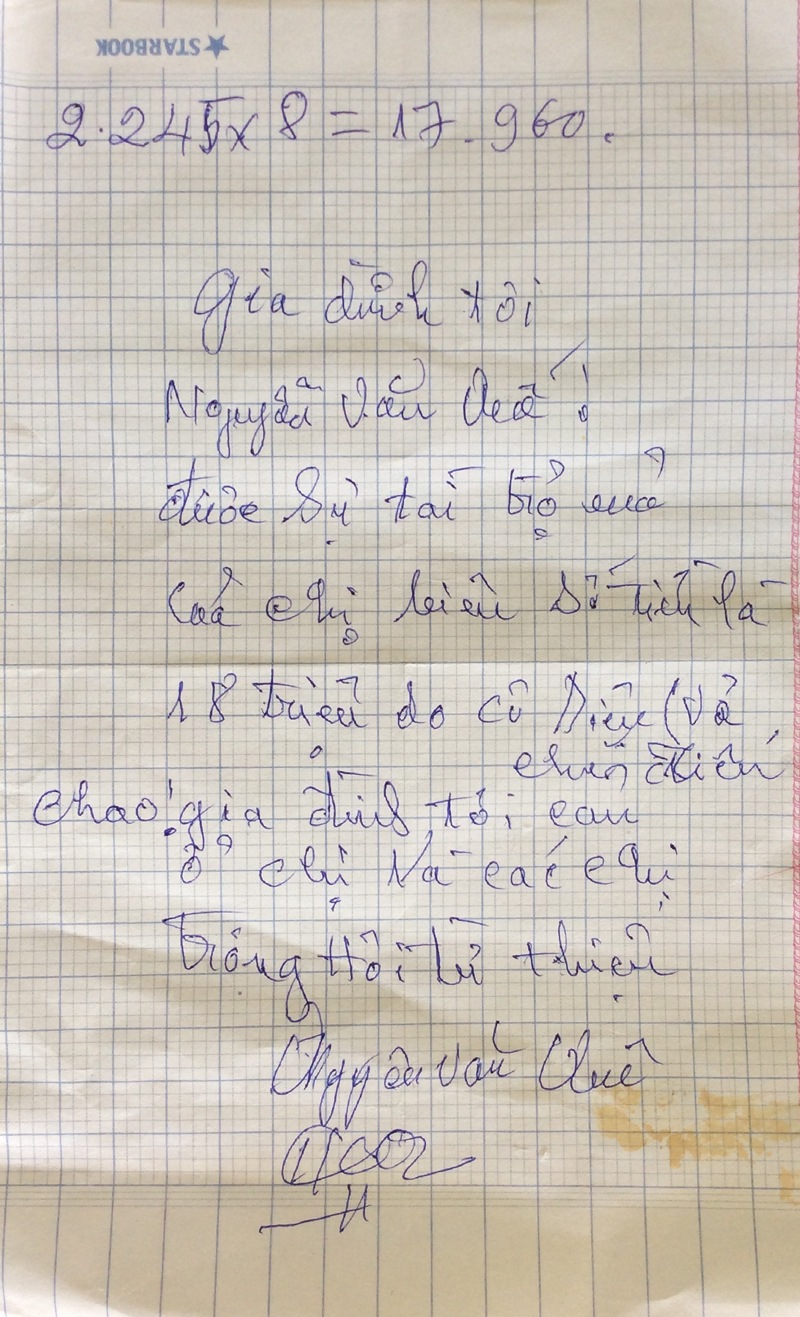 STARBOOK
2.245 x 8 = 17.960.
Gia đình tôi
Nguyễn Văn Quế
được Sự tài trợ của
của chị biếu số tiền là
18 triệu do cô Diệu (Và
Chao! gia đình tôi cảm
ơ chị Và các chị
trong Hội từ thiện
Nguyễn Văn Quế